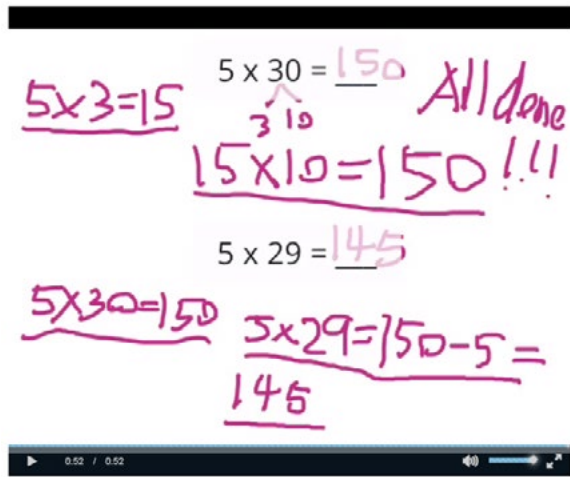 5 x 30 = 150
5x3=15
3 10
All done!!!
15x10=150
5 x 29 = 145
5x30=150
5x29=150-5=
145
0:52 / 0:52